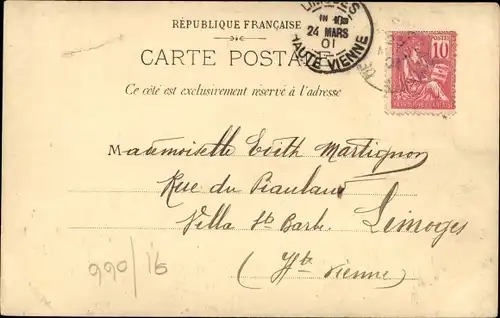 RÉPUBLIQUE FRANÇAISE
LIMOGES
24 MARS
01
HAUTE VIENNE
10
CARTE POSTA
Ce côté est exclusivement réservé à l'adresse
Mademoiselle Edith Martignon
Rue du
Villa Ste Barb. Limoges
(Hte Vienne)
990/16